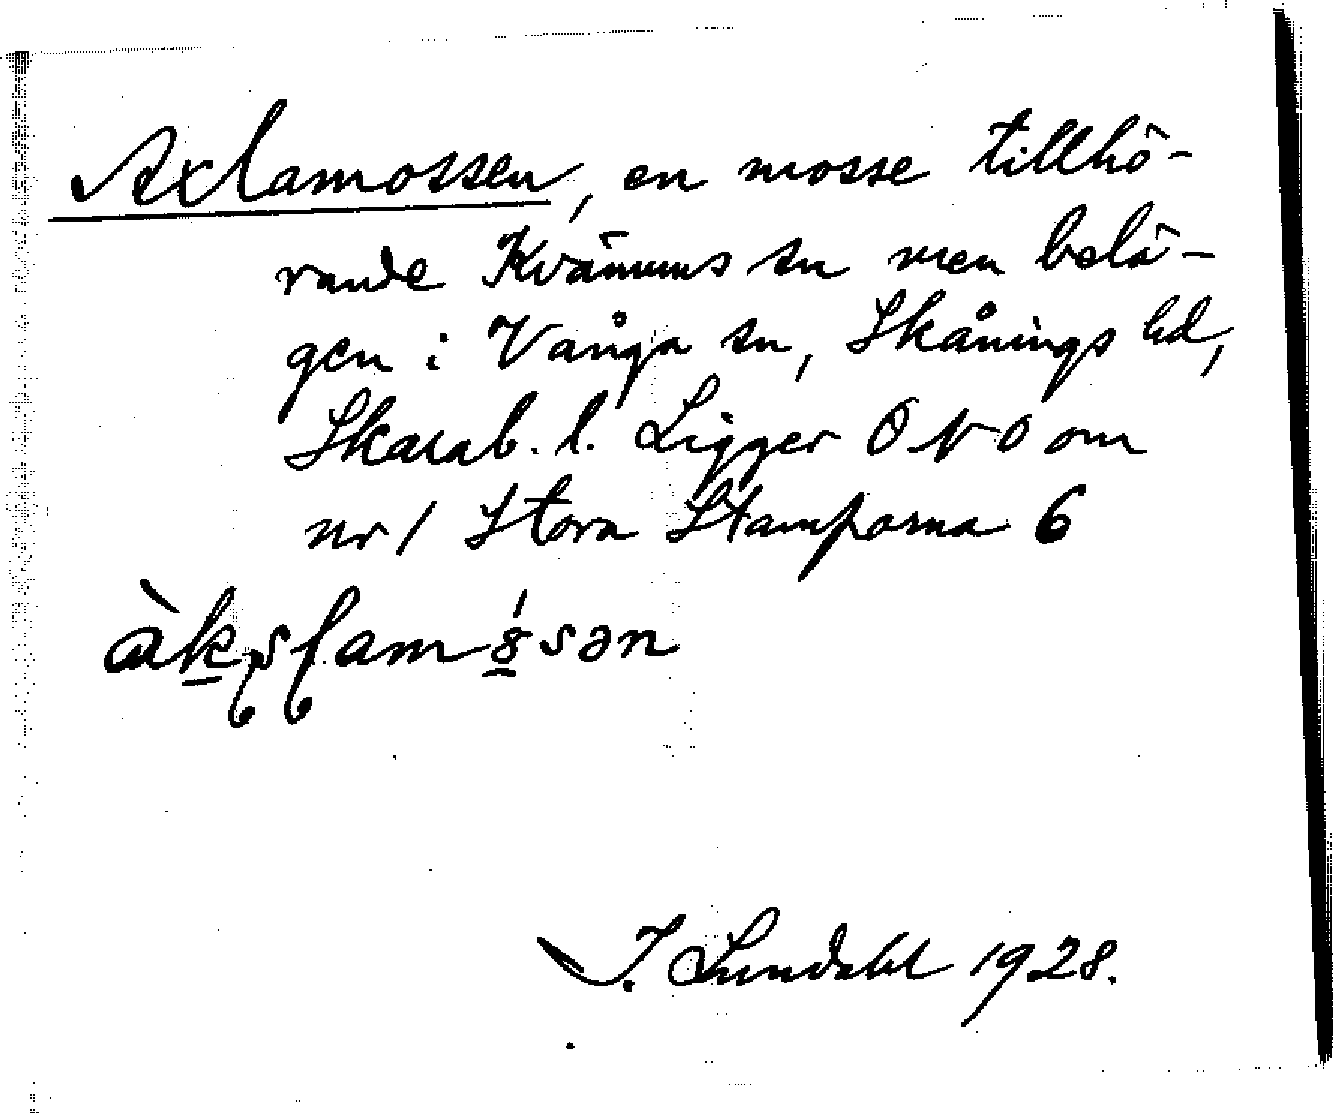 Axlamossen, en mosse tillhö-
rande Kvänums sn men belä-
gen i Vånga sn, Skånings hd,
Skarab. l. Ligger O N O om
nr 1 Stora Stamporna 6
àkslam 8́sən
I. Lundahl 1928.